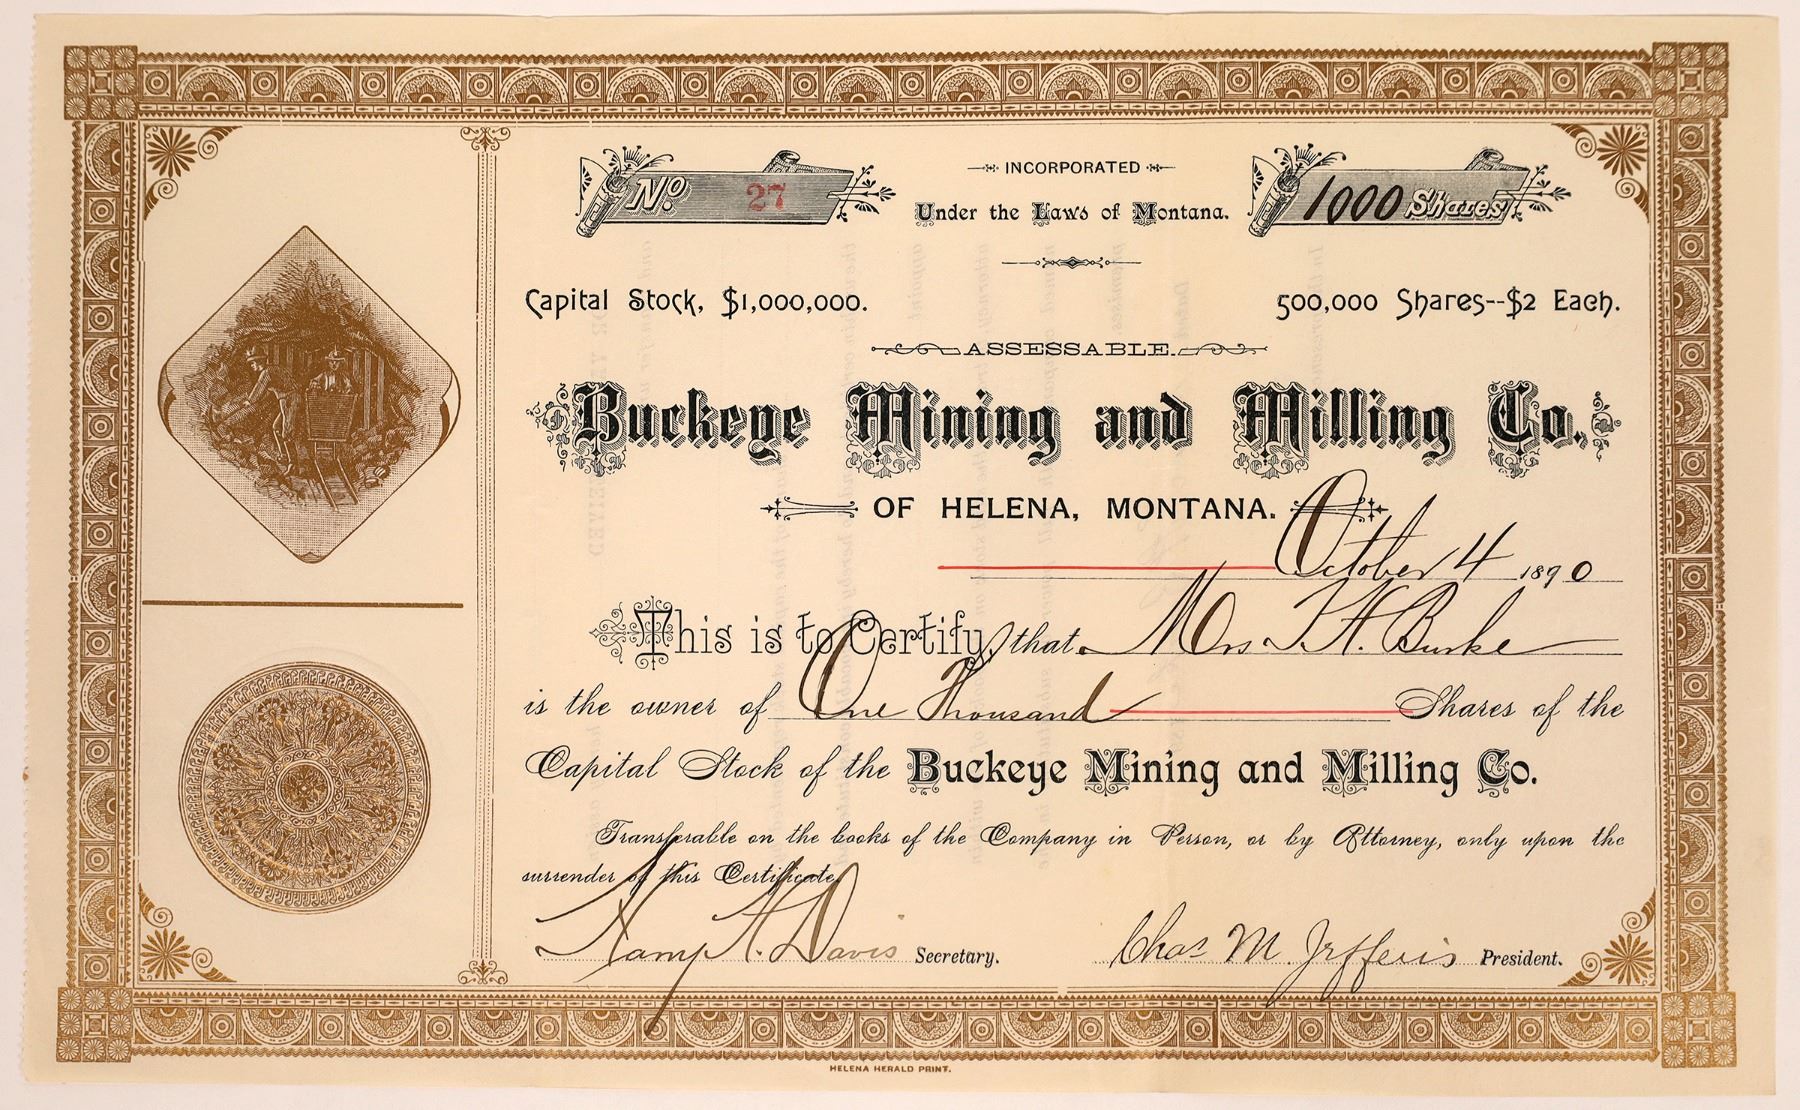 No. 27
INCORPORATED
Under the Laws of Montana.
1000 Shares
Capital Stock, $1,000,000.
500,000 Shares--$2 Each.
ASSESSABLE.
Buckeye Mining and Milling Co.,
OF HELENA, MONTANA.
October 4 1890
This is to Certify, that Mrs T. H. Burke
is the owner of One Thousand Shares of the
Capital Stock of the Buckeye Mining and Milling Co.
Transferable on the books of the Company in Person, or by Attorney, only upon the
surrender of this Certificate.
H. Davis Secretary.
Chas M. Jefferis President.
HELENA HERALD PRINT.